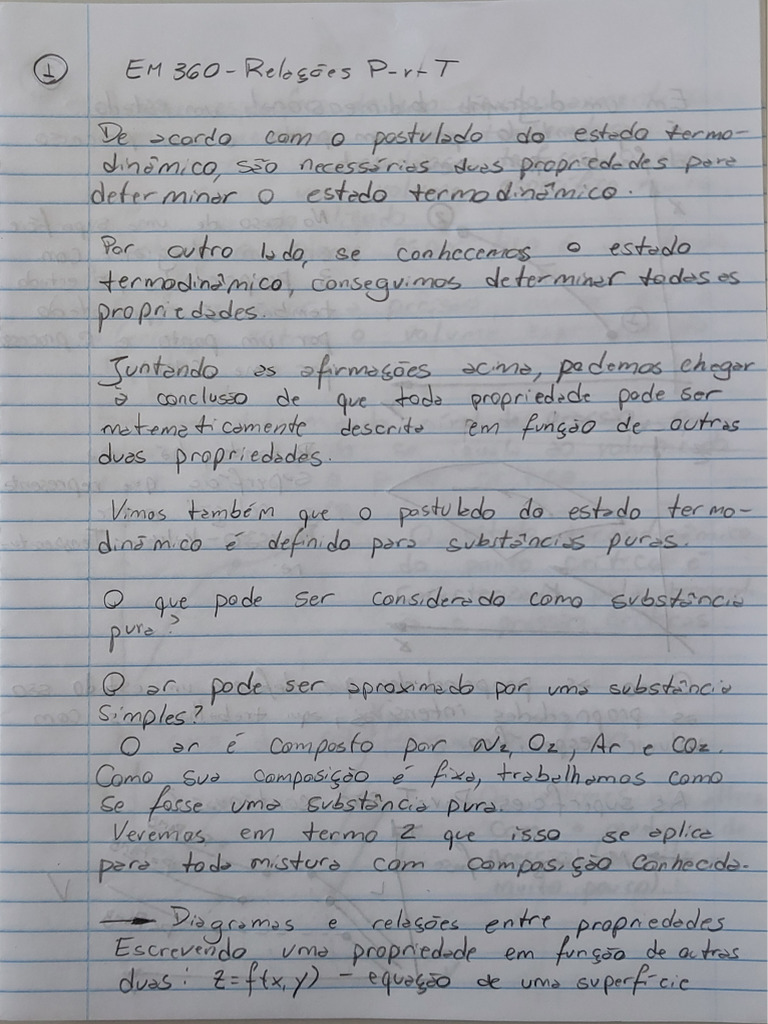 1 EM 360 - Relações P-v-T
De acordo com o postulado do estado termo-
dinâmico, são necessárias duas propriedades para
determinar o estado termodinâmico.
Por outro lado, se conhecemos o estado
termodinâmico, conseguimos determinar todas as
propriedades.
Juntando as afirmações acima, podemos chegar
à conclusão de que toda propriedade pode ser
matematicamente descrita em função de outras
duas propriedades.
Vimos também que o postulado do estado termo-
dinâmico é definido para substâncias puras.
O que pode ser considerado como substância
pura?
O ar pode ser aproximado por uma substância
simples?
O ar é composto por N2, O2, Ar e CO2.
Como sua composição é fixa, trabalhamos como
se fosse uma substância pura.
Veremos em termo 2 que isso se aplica
para toda mistura com composição conhecida.
— Diagramas e relações entre propriedades
Escrevendo uma propriedade em função de outras
duas: z=f(x,y) - equação de uma superfície